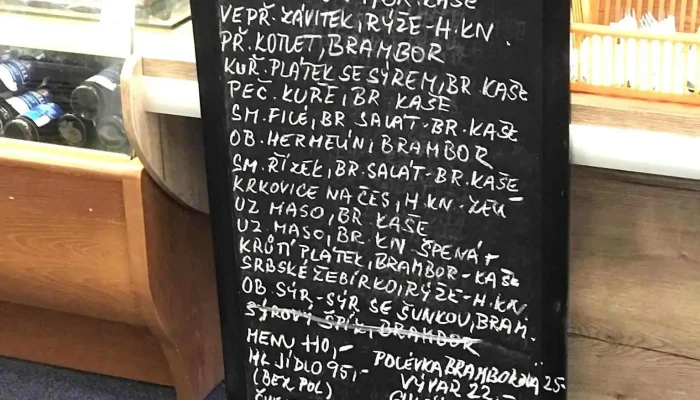 KAŠE
VEPŘ. ZÁVITEK, RÝŽE-H.KN.
PŘ. KOTLET, BRAMBOR
KUŘ. PLÁTEK SE SÝREM, BR. KAŠE
PEČ. KUŘE, BR KAŠE
SM. FILÉ, BR SALÁT-BR. KAŠE
OB. HERMELÍN, BRAMBOR
SM. ŘÍZEK, BR. SALÁT-BR. KAŠE
KRKOVICE NA ČES, H.KN-ZELÍ
UZ MASO, BR. KAŠE
UZ. MASO, BR. KN ŠPENÁT
KRŮTÍ PLÁTEK, BRAMBOR-KAŠE
SRBSKÉ ŽEBÍRKO, RÝŽE-H.KN
OB. SÝR-SÝR SE ŠUNKOU, BRAM.
SÝROVÝ ŠPÍZ, BRAMBOR
MENU 110,- POLÉVKA BRAMBOROVÁ 25-
HL. JÍDLO 95,- VÝVAR 22,-
(BEZ POL)